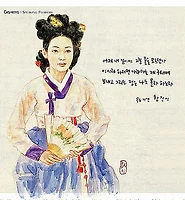 어져 내 일이야 그릴 줄을 모르던가
이시라 하더면 가랴마는 제 구태여
보내고 그리는 정은 나도 몰라 하노라
황진이